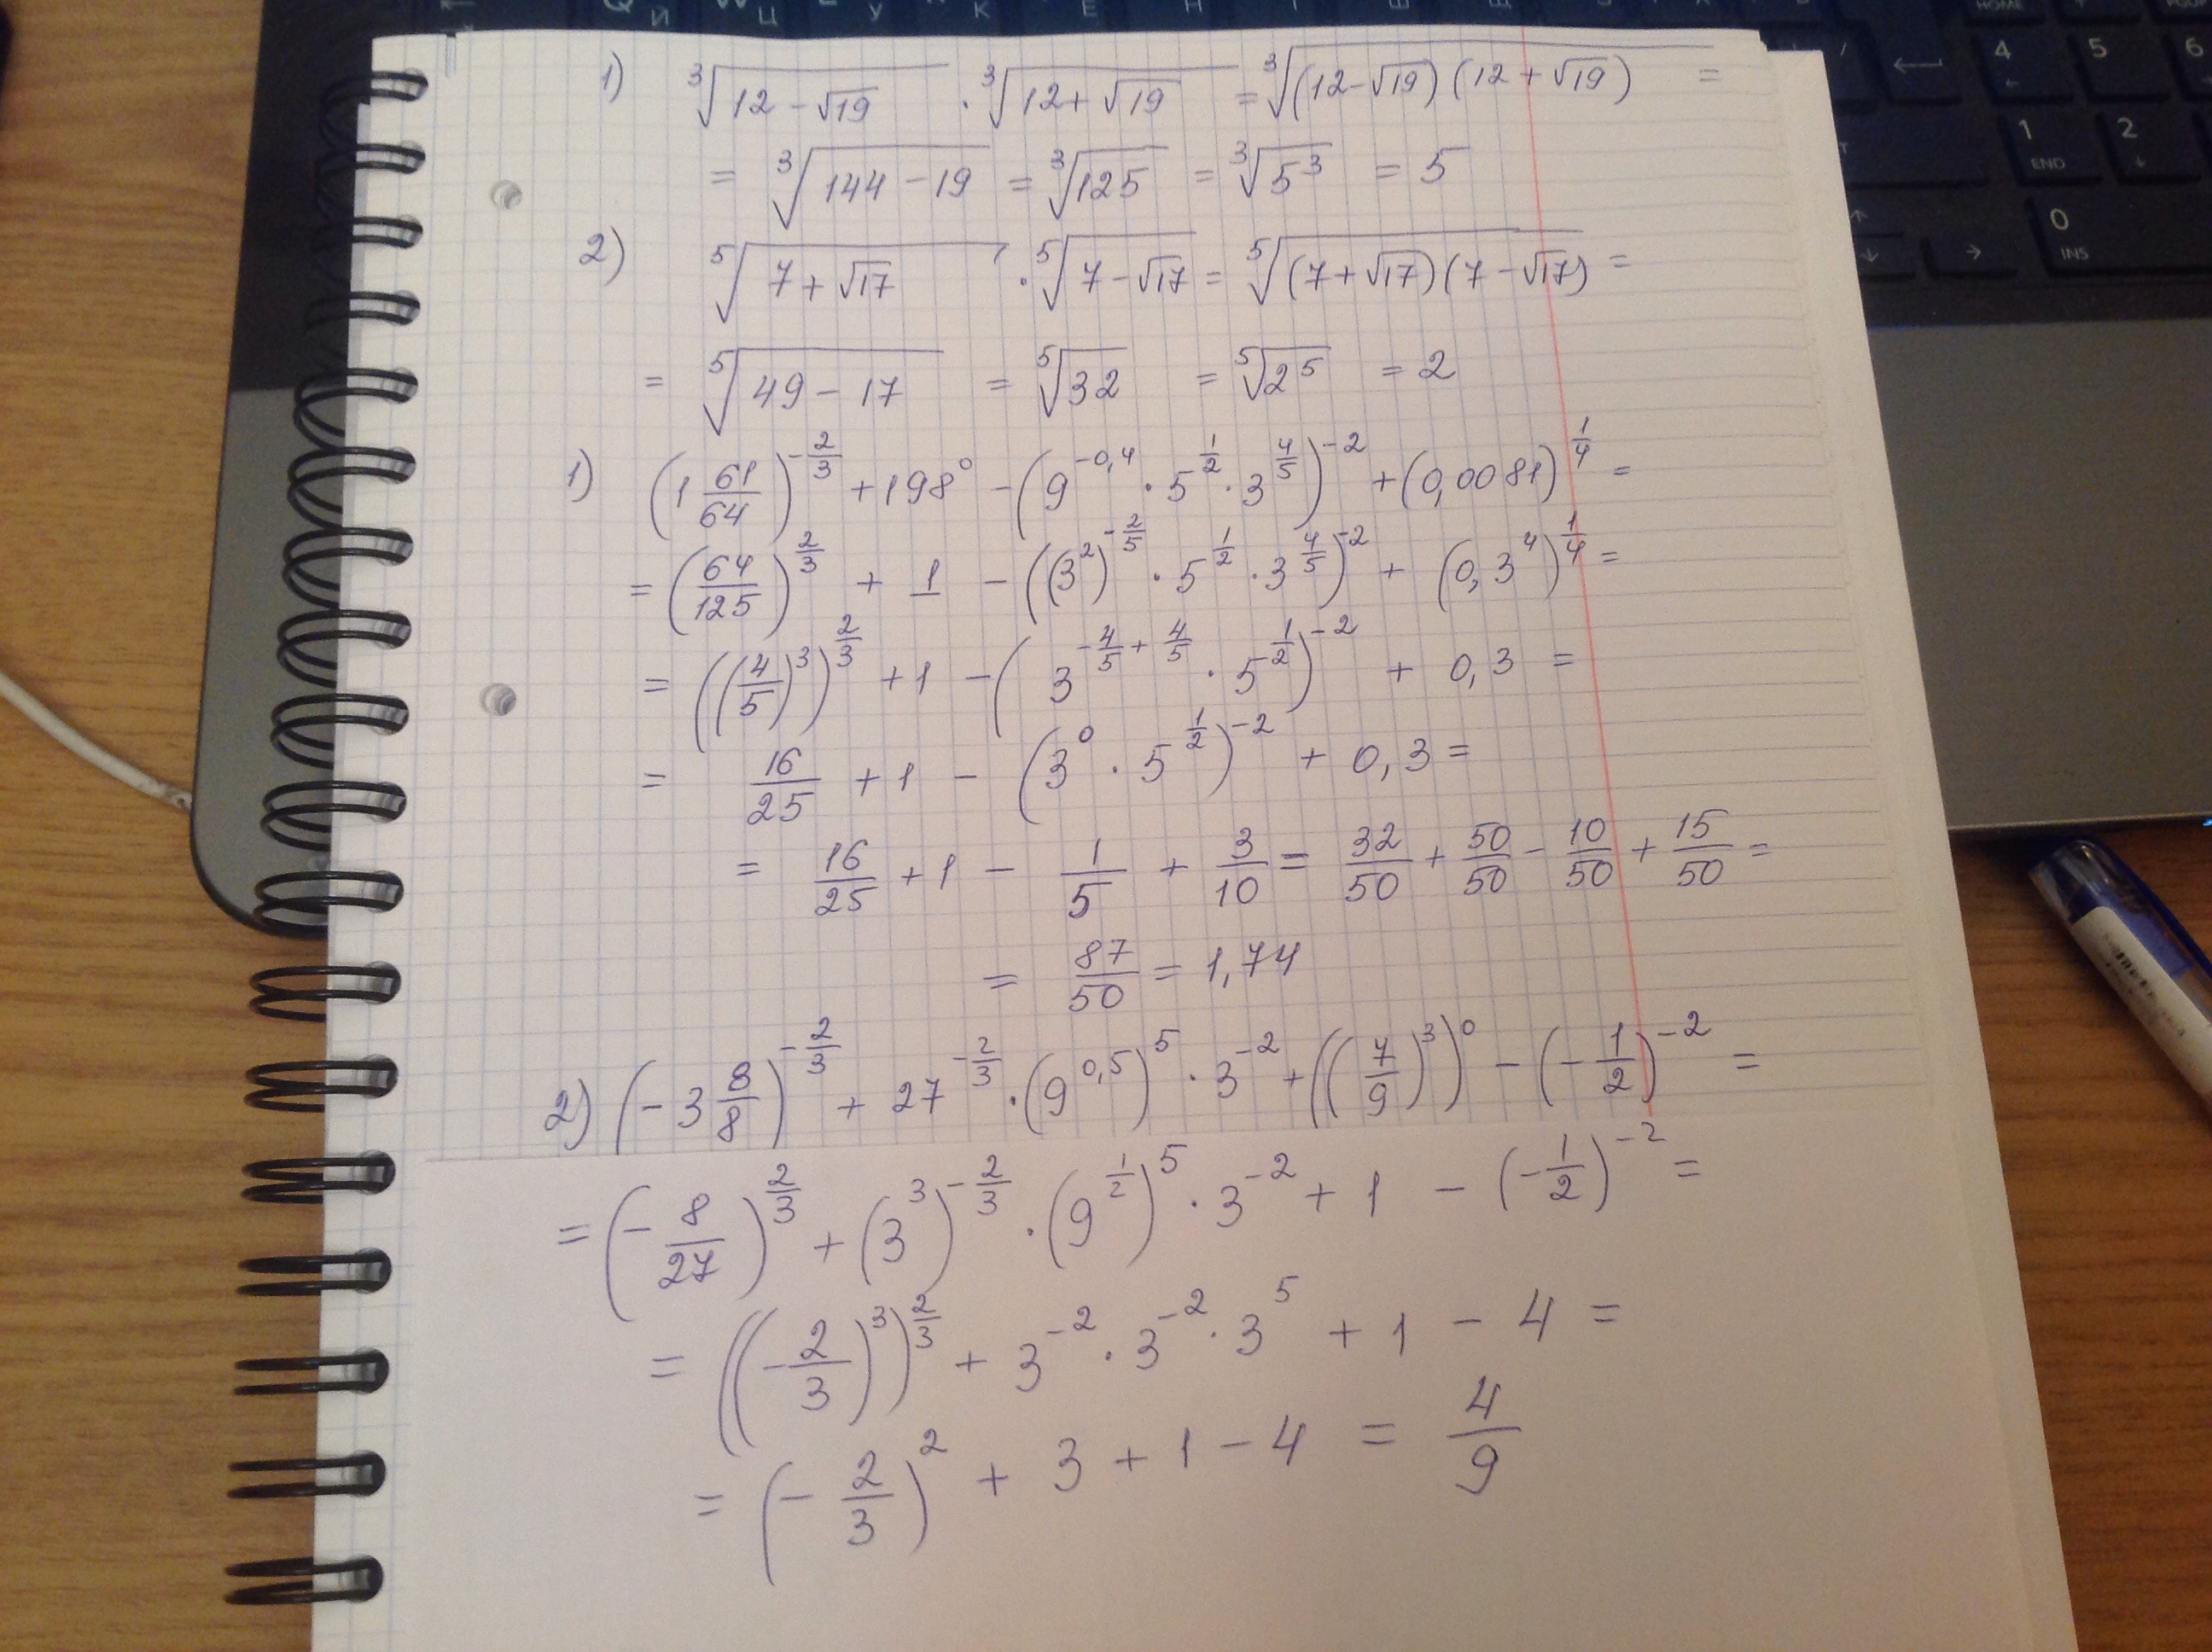 1) ∛(12 - √19) · ∛(12 + √19) = ∛((12-√19)(12+√19)) =
= ∛(144 - 19) = ∛125 = ∛(5³) = 5
2) ⁵√(7 + √17) · ⁵√(7 - √17) = ⁵√((7+√17)(7-√17)) =
= ⁵√(49 - 17) = ⁵√32 = ⁵√(2⁵) = 2
1) (1 61/64)^(-2/3) + 198^0 - (9^(-0,4) · 5^(1/2) · 3^(4/5))^(-2) + (0,0081)^(1/4) =
= (64/125)^(2/3) + 1 - ((3^2)^(-2/5) · 5^(1/2) · 3^(4/5))^(-2) + (0,3^4)^(1/4) =
= ((4/5)^3)^(2/3) + 1 - (3^(-4/5 + 4/5) · 5^(1/2))^(-2) + 0,3 =
= 16/25 + 1 - (3^0 · 5^(1/2))^(-2) + 0,3 =
= 16/25 + 1 - 1/5 + 3/10 = 32/50 + 50/50 - 10/50 + 15/50 =
= 87/50 = 1,74
2) (-3 3/8)^(-2/3) + 27^(-2/3) · (9^(0,5))^5 · 3^(-2) + ((7/9)^3)^0 - (-1/2)^(-2) =
= (-8/27)^(2/3) + (3^3)^(-2/3) · (9^(1/2))^5 · 3^(-2) + 1 - (-1/2)^(-2) =
= ((-2/3)^3)^(2/3) + 3^(-2) · 3^(-2) · 3^5 + 1 - 4 =
= (-2/3)^2 + 3 + 1 - 4 = 4/9
4
HOME
5
6
1
END
2
0
INS